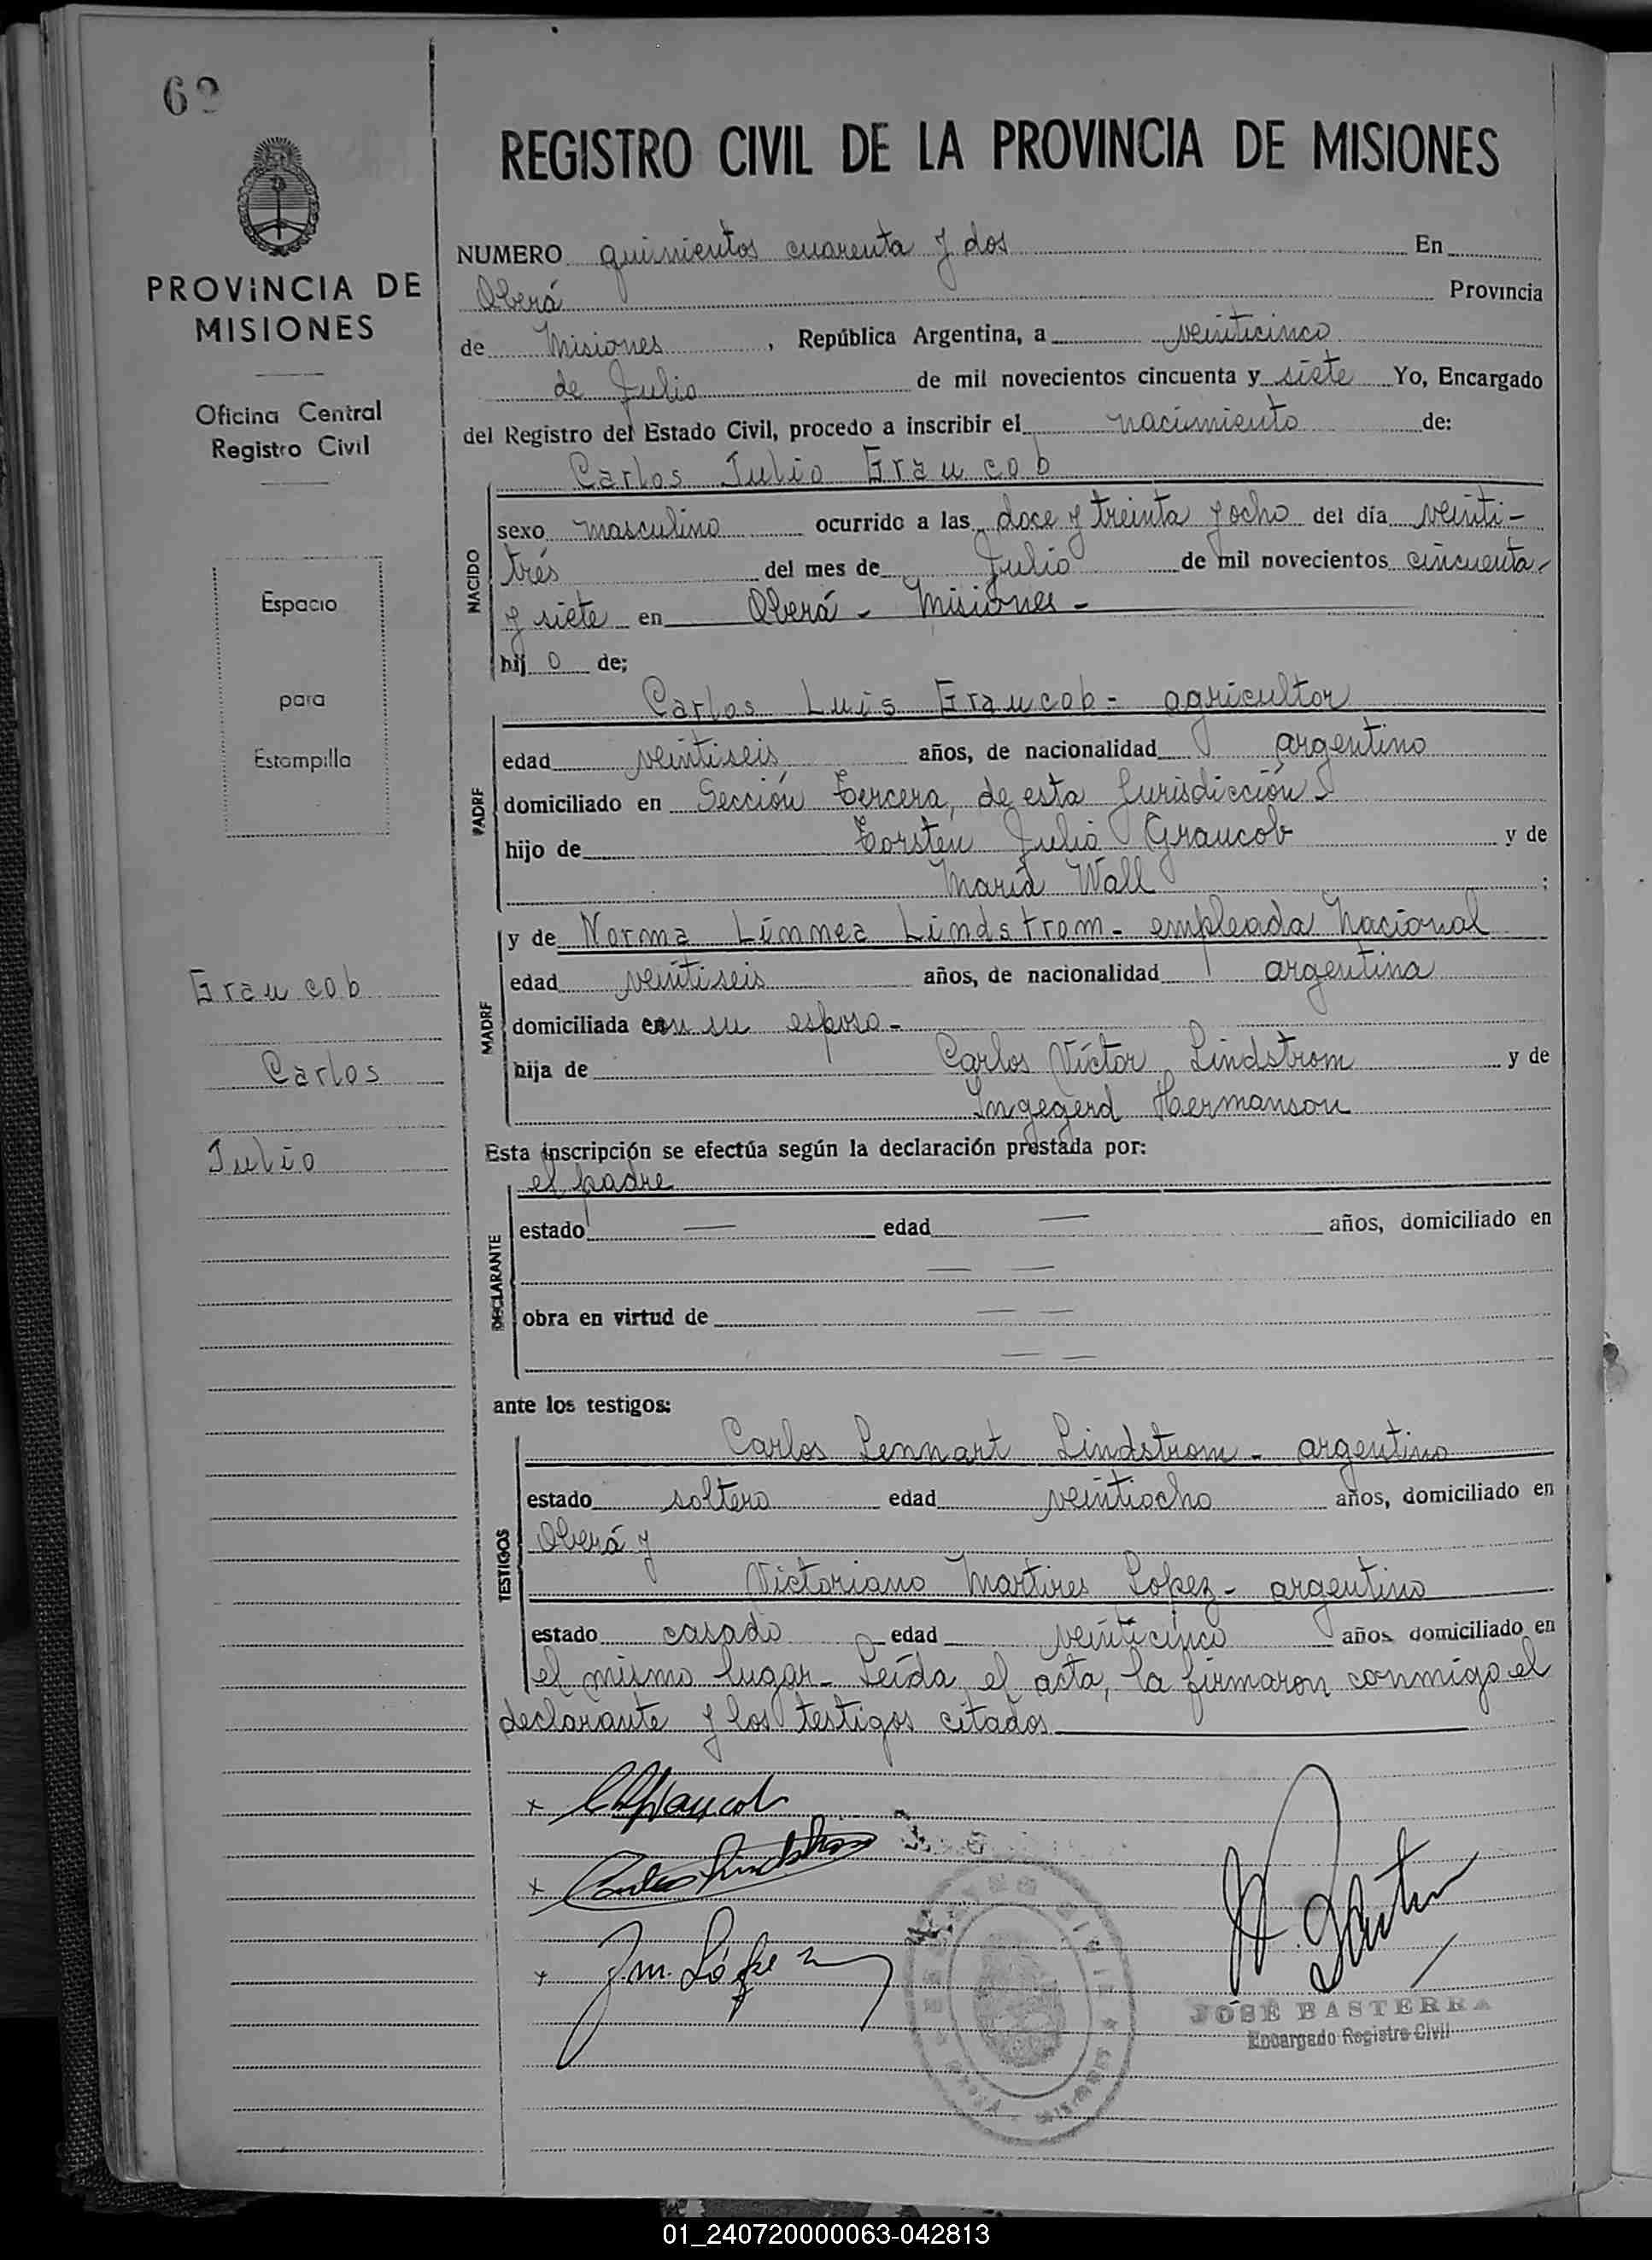 62
REGISTRO CIVIL DE LA PROVINCIA DE MISIONES
PROVINCIA DE
MISIONES
Oficina Central
Registro Civil
Espacio
para
Estampilla
Graucob
Carlos
Julio
NUMERO quinientos cuarenta y dos En
Oberá Provincia
de Misiones, República Argentina, a veinticinco
de Julio de mil novecientos cincuenta y siete Yo, Encargado
del Registro del Estado Civil, procedo a inscribir el nacimiento de:
NACIDO
Carlos Julio Graucob
sexo masculino ocurrido a las doce y treinta y ocho del día veinti-
trés del mes de Julio de mil novecientos cincuenta
y siete en Oberá - Misiones -
hijo de;
PADRE
Carlos Luis Graucob - agricultor
edad veintiseis años, de nacionalidad argentino
domiciliado en Sección Tercera, de esta Jurisdicción -
hijo de Torsten Julio Graucob y de
María Wall ;
MADRE
y de Norma Linnea Lindstrom - empleada Nacional
edad veintiseis años, de nacionalidad argentina
domiciliada con su esposo -
hija de Carlos Víctor Lindstrom y de
Ingegerd Hermanson
Esta inscripción se efectúa según la declaración prestada por:
DECLARANTE
el padre
estado — edad — años, domiciliado en
— —
obra en virtud de — —
— —
ante los testigos:
TESTIGOS
Carlos Lennart Lindstrom - argentino
estado soltero edad veintiocho años, domiciliado en
Oberá y
Victoriano Martires Lopez - argentino
estado casado edad veinticinco años domiciliado en
el mismo lugar - Leída el acta, la firmaron conmigo el
declarante y los testigos citados
x Graucob
x Carlos Lindstrom
x López
JOSÉ BASTERRA
Encargado Registro Civil
MISIONES
01_240720000063-042813